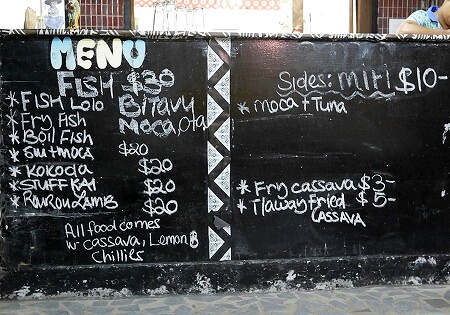 MENU
FISH $30
* FISH LOLO
* FRY FISH
* BOIL FISH
BITAVU
MOCA, OTA
* SUITMOCA $20
* KOKODA $20
* STUFF KAI $20
* ROUROU LAMB $20
All food comes
w cassava, Lemon &
Chillies
Sides: miti $10-
* MOCA + TUNA
* Fry cassava $3-
* TLAWAY FRIED $5-
CASSAVA